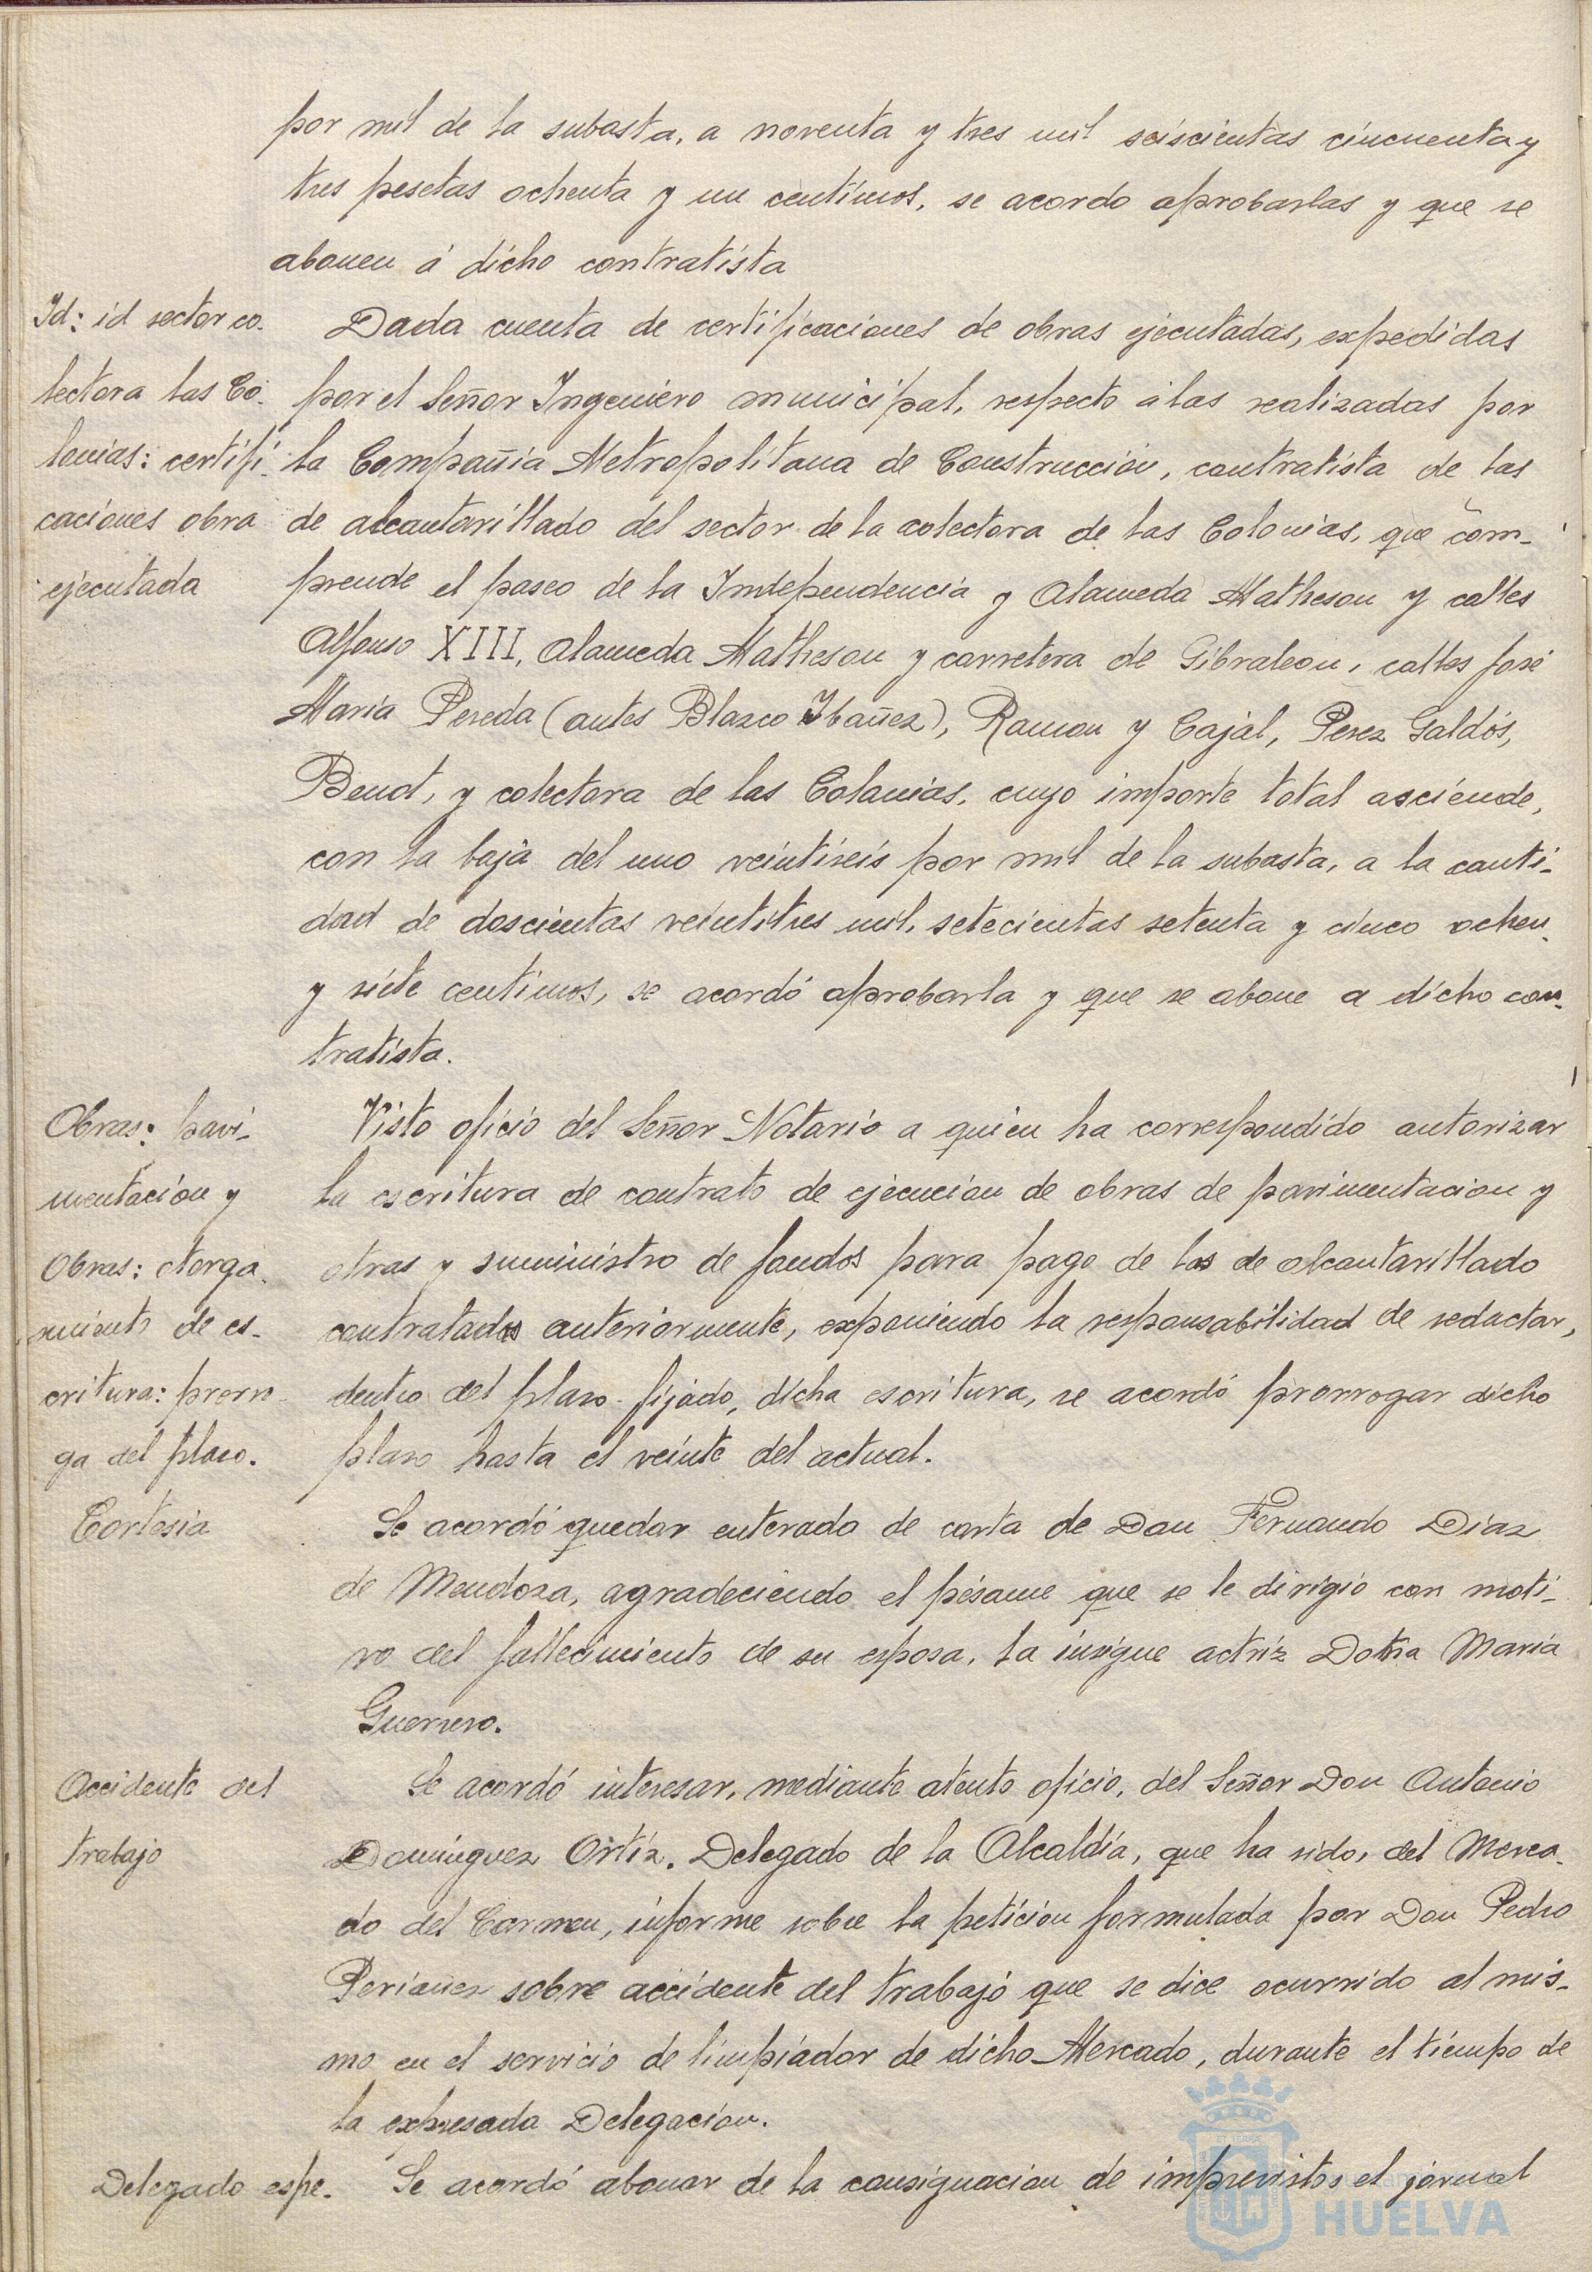 por mil de la subasta, a noventa y tres mil seiscientas cincuenta y
tres pesetas ochenta y un centimos, se acordo aprobarlas y que se
abonen á dicho contratista
Id: id sector co-
lectora las Co-
lonias: certifi-
caciones obra
ejecutada
Dada cuenta de certificaciones de obras ejecutadas, expedidas
por el Señor Ingeniero municipal, respecto a las realizadas por
la Compañia Metropolitana de Construccion, contratista de las
de alcantarillado del sector de la colectora de las Colonias, que com-
prende el paseo de la Independencia y Alameda Matheson y calles
Alfonso XIII, Alameda Matheson y carretera de Gibraleon, calles José
Maria Pereda (antes Blasco Ibañez), Ramon y Cajal, Perez Galdós,
Benot, y colectora de las Colonias, cuyo importe total asciende,
con la baja del uno veintiseis por mil de la subasta, a la canti-
dad de doscientas veintitres mil, setecientas setenta y cinco ochen-
y siete centimos, se acordó aprobarla y que se abone a dicho con-
tratista.
Obras: pavi-
mentación y
Obras: otorga-
miento de es-
critura: prorro-
ga del plazo.
Visto oficio del Señor Notario a quien ha correspondido autorizar
la escritura de contrato de ejecucion de obras de pavimentacion y
otras y suministro de fondos para pago de los de alcantarillado
contratados anteriormente, exponiendo la responsabilidad de redactar,
dentro del plazo fijado, dicha escritura, se acordó prorrogar dicho
plazo hasta el veinte del actual.
Cortesia
Se acordó quedar enterado de carta de Don Fernando Diaz
de Mendoza, agradeciendo el pésame que se le dirigio con moti-
vo del fallecimiento de su esposa, la insigne actriz Doña Maria
Guerrero.
Accidente del
trabajo
Se acordó interesar, mediante atento oficio, del Señor Don Antonio
Domínguez Ortíz. Delegado de la Alcaldía, que ha sido, del Merca-
do del Carmen, informe sobre la petición formulada por Don Pedro
Periañez sobre accidente del trabajo que se dice ocurrido al mis-
mo en el servicio de limpiador de dicho Mercado, durante el tiempo de
la expresada Delegacion.
Delegado espe-
Se acordó abonar de la consignacion de imprevistos el jornal
HUELVA